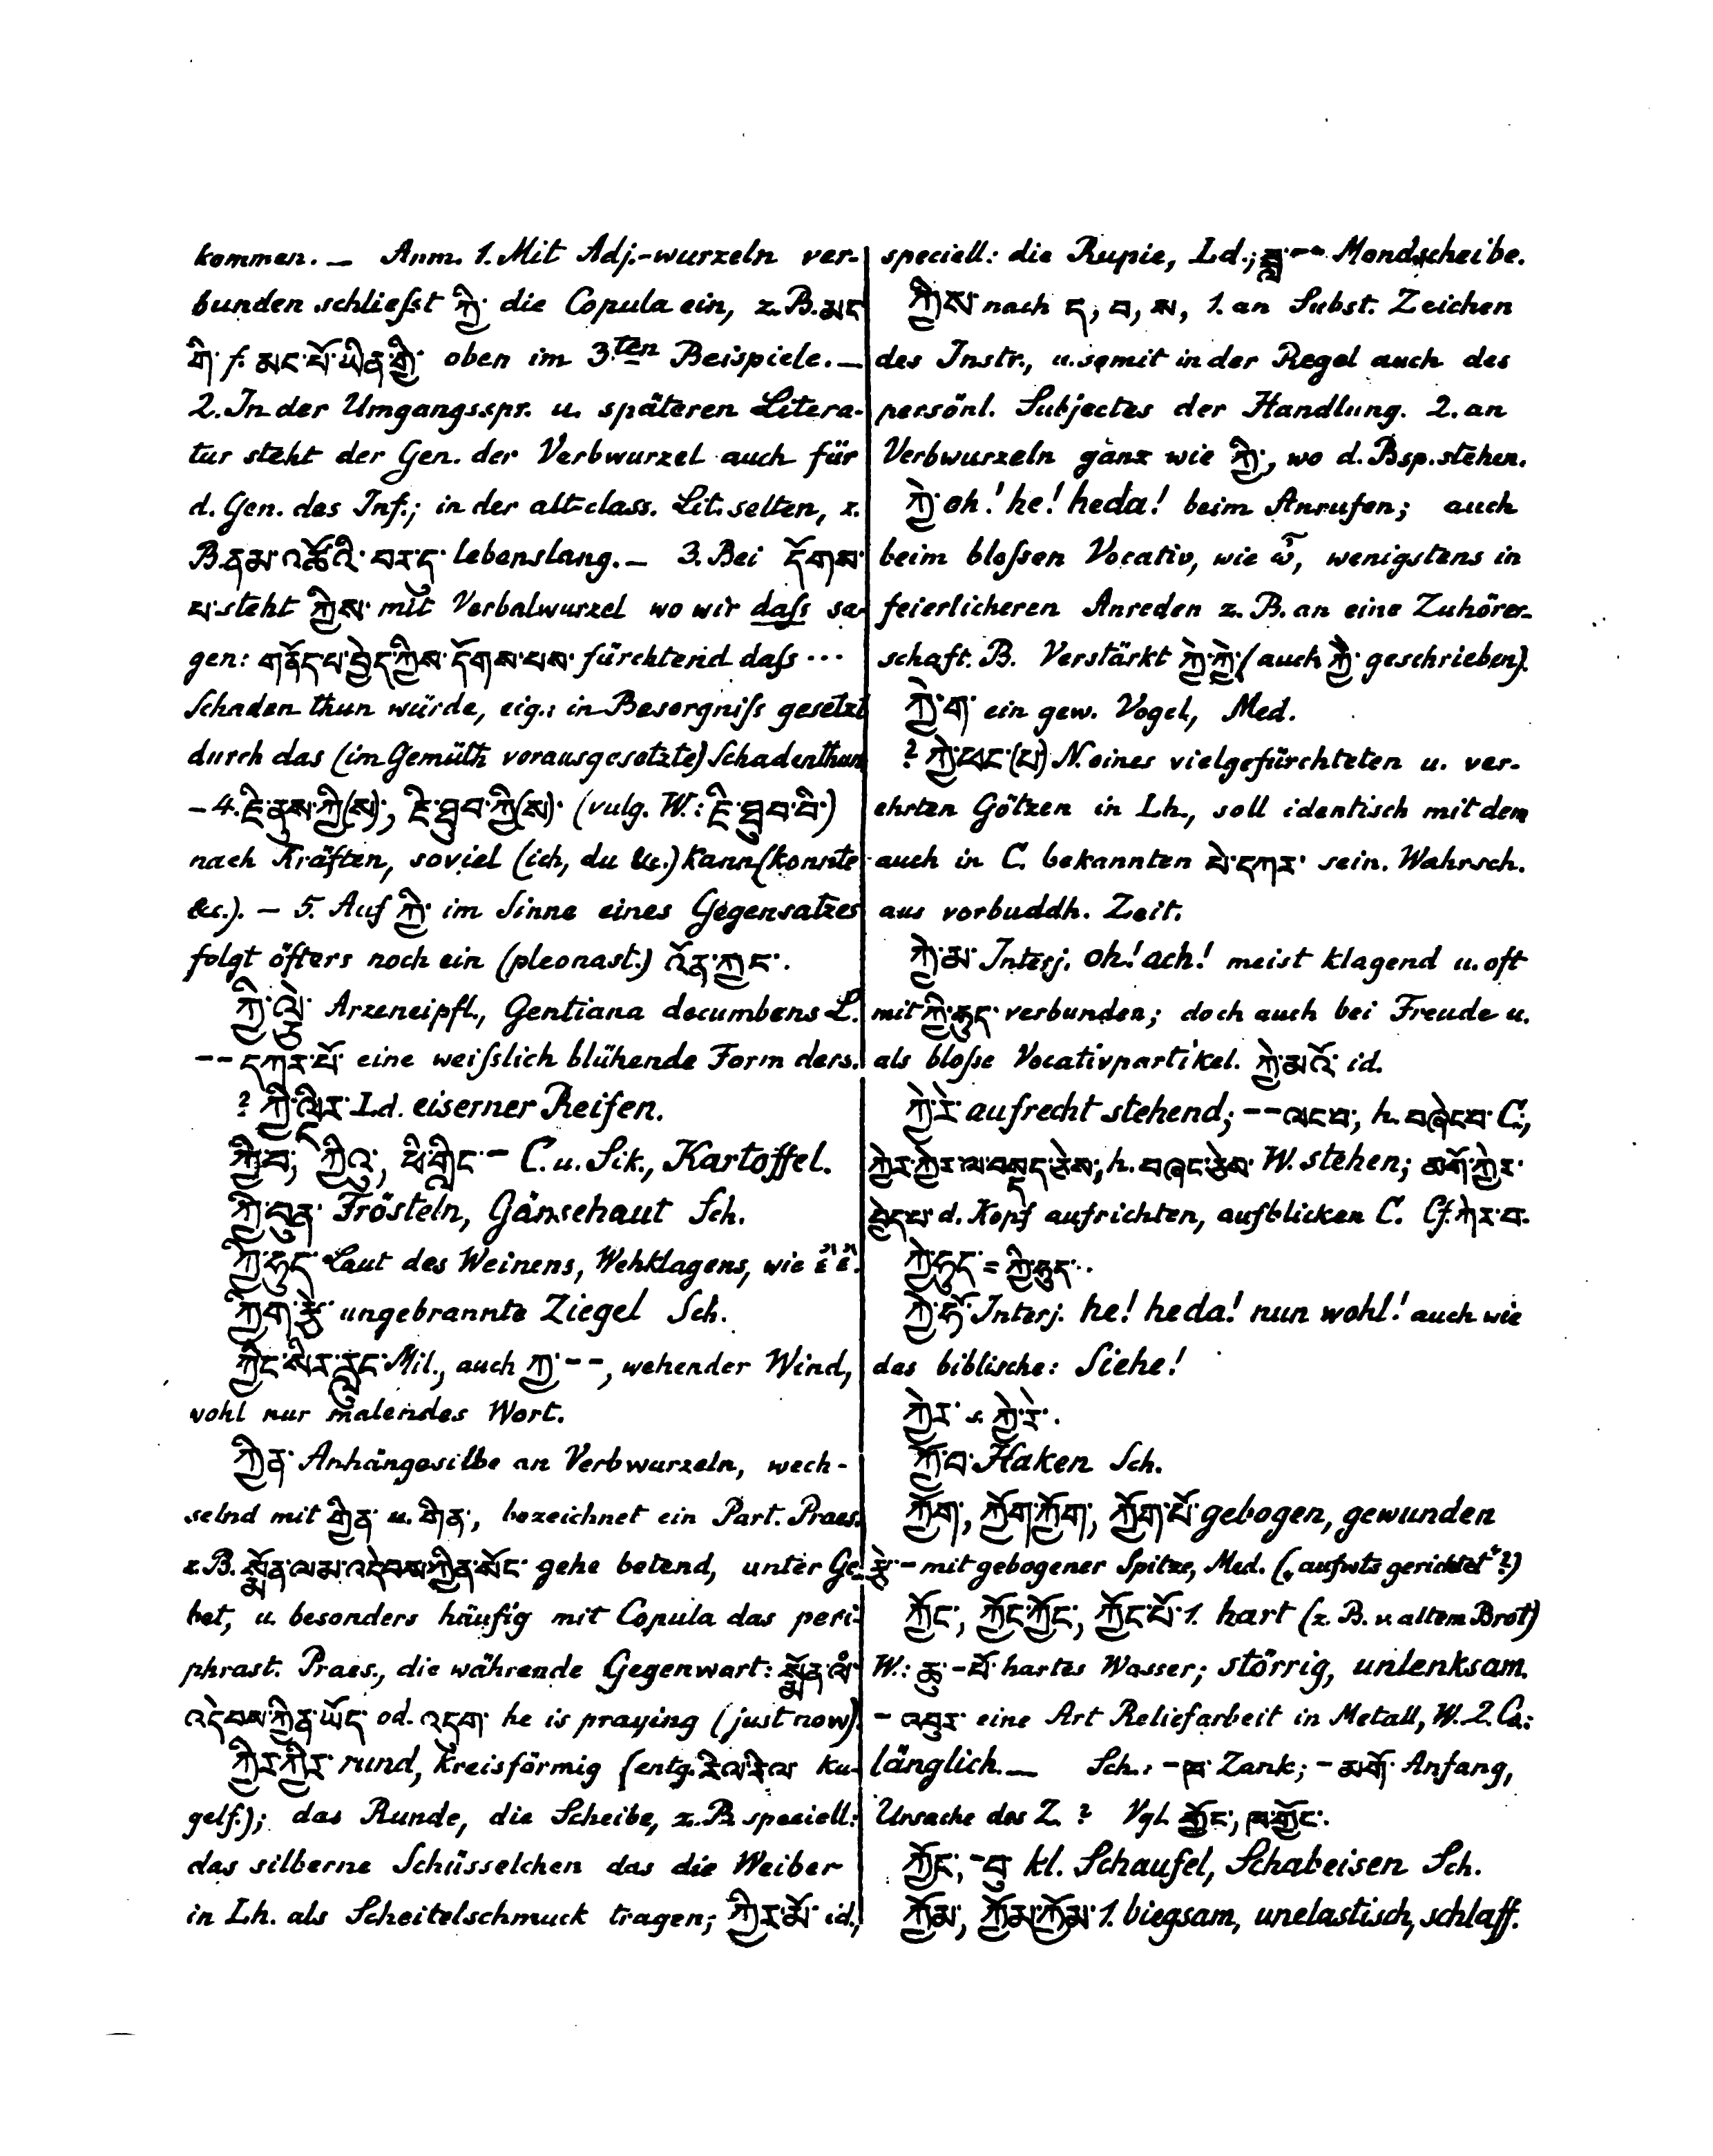 kommen. — Anm. 1. Mit Adj.-wurzeln ver-
bunden schließt ཀྱི་ die Copula ein, z. B. མང
གི་ f. མང་པོ་ཡིན་གྱི་ oben im 3.ten Beispiele. —
2. In der Umgangsspr. u. späteren Litera-
tur steht der Gen. der Verbwurzel auch für
d. Gen. des Inf.; in der alt-class. Lit. selten, z.
B ནམ་འཚོའི་བར་དུ་ lebenslang. — 3. Bei དོགས་
པ་ steht ཀྱིས་ mit Verbalwurzel wo wir daß sa-
gen: གནོད་པ་བྱེད་ཀྱིས་དོགས་པས་ fürchtend daß ···
Schaden thun würde, eig.: in Besorgniß gesetzt
durch das (im Gemüth vorausgesetzte) Schadenthun
– 4. ཇི་ནུས་ཀྱི(ས)་, ཇི་ཐུབ་ཀྱི(ས)་ (vulg. W.: ཇི་ཐུབ་བི་)
nach Kräften, soviel (ich, du &c.) kann (konnte
&c.). – 5. Auf ཀྱི་ im Sinne eines Gegensatzes
folgt öfters noch ein (pleonast.) འོན་ཀྱང་.
ཀྱི་ལྕེ་ Arzeneipfl., Gentiana decumbens L.
-- དཀར་པོ་ eine weißlich blühende Form ders.
? ཀྱི་ལིར་ Ld. eiserner Reifen.
ཀྱི་བ, ཀྱིའུ, ཕི་གླིང་ – C. u. Sik., Kartoffel.
ཀྱི་བུན་ Frösteln, Gänsehaut Sch.
ཀྱི་ཧུད་ Laut des Weinens, Wehklagens, wie
ཀྱིག་རྩེ་ ungebrannte Ziegel Sch.
ཀྱིང་སེར་རླུང་ Mil., auch ཀྱ་--, wehender Wind,
wohl nur malendes Wort.
ཀྱིན་ Anhängesilbe an Verbwurzeln, wech-
selnd mit གྱིན་ u. གིན་, bezeichnet ein Part. Praes.
z. B. སྨོན་ལམ་འདེབས་ཀྱིན་སོང་ gehe betend, unter Ge-
bet, u. besonders häufig mit Copula das peri-
phrast. Praes., die währende Gegenwart: སྨོན་ལཾ་
འདེབས་ཀྱིན་ཡོད་ od. འདུག་ he is praying (just now).
ཀྱིར་ཀྱིར་ rund, kreisförmig (entg. རིལ་རིལ་ ku-
gelf.); das Runde, die Scheibe, z. B. speciell:
das silberne Schüsselchen das die Weiber
in Lh. als Scheitelschmuck tragen; ཀྱིར་མོ་ id.,
speciell: die Rupie, Ld.; ཟླ་-- Mondscheibe.
ཀྱིས་ nach ད, བ, ས, 1. an Subst. Zeichen
des Instr., u. somit in der Regel auch des
persönl. Subjectes der Handlung. 2. an
Verbwurzeln ganz wie ཀྱི་, wo d. Bsp. stehen.
ཀྱེ་ oh! he! heda! beim Anrufen; auch
beim bloßen Vocativ, wie ὦ, wenigstens in
feierlicheren Anreden z. B. an eine Zuhörer-
schaft. B. Verstärkt ཀྱེ་ཀྱེ་ (auch ཀྱཻ་ geschrieben).
ཀྱེ་ག་ ein gew. Vogel, Med.
? ཀྱེ་ཕང་(པ) N. eines vielgefürchteten u. ver-
ehrten Götzen in Lh., soll identisch mit dem
auch in C. bekannten པེ་དཀར་ sein. Wahrsch.
aus vorbuddh. Zeit.
ཀྱེ་མ་ Interj. oh! ach! meist klagend u. oft
mit ཀྱི་ཧུད་ verbunden; doch auch bei Freude u.
als bloße Vocativpartikel. ཀྱེ་མའོ་ id.
ཀྱེ་རེ་ aufrecht stehend; -- ལང་བ་, h. བཞེངབ་ C.,
ཀྱེར་ཀྱེར་ལ་བསྡད་ཅེས་, h. བཞང་ཅེས་ W. stehen; མགོ་ཀྱེར་
བྱེད་པ་ d. Kopf aufrichten, aufblicken C. Cf. ཀེར་བ་.
ཀྱེ་ཧུད་ = ཀྱི་ཧུད་.
ཀྱེ་ཧོ་ Interj. he! heda! nun wohl! auch wie
das biblische: Siehe!
ཀྱེར་ s. ཀྱེ་རེ་.
ཀྱོ་བ་ Haken Sch.
ཀྱོག་, ཀྱོག་ཀྱོག་, ཀྱོག་པོ་ gebogen, gewunden
རྩེ་ – mit gebogener Spitze, Med. („aufwts gerichtet“?)
ཀྱོང་, ཀྱོང་ཀྱོང་, ཀྱོང་པོ་ 1. hart (z. B. v. altem Brot)
W.: ཆུ་ – པོ་ hartes Wasser; störrig, unlenksam.
– འབུར་ eine Art Reliefarbeit in Metall, W. 2. Cs.:
länglich. — Sch.: – ཁ་ Zank; – མགོ་ Anfang,
Ursache des Z. ? Vgl. གྱོང་, ཁ་གྱོང་.
ཀྱོང་, – བུ kl. Schaufel, Schabeisen Sch.
ཀྱོམ་, ཀྱོམ་ཀྱོམ་ 1. biegsam, unelastisch, schlaff.